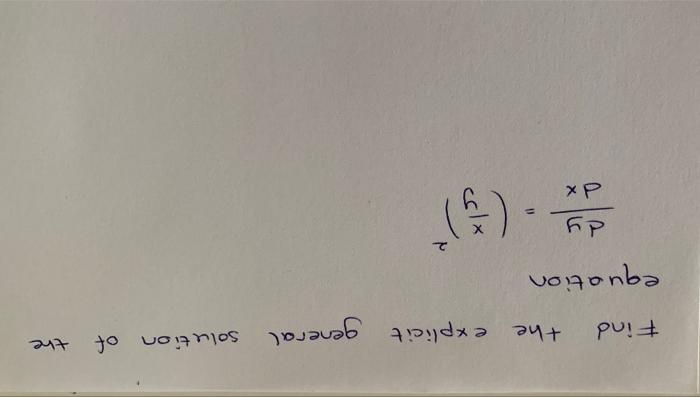 Find the explicit general solution of the
equation
dy/dx = (x/y)²